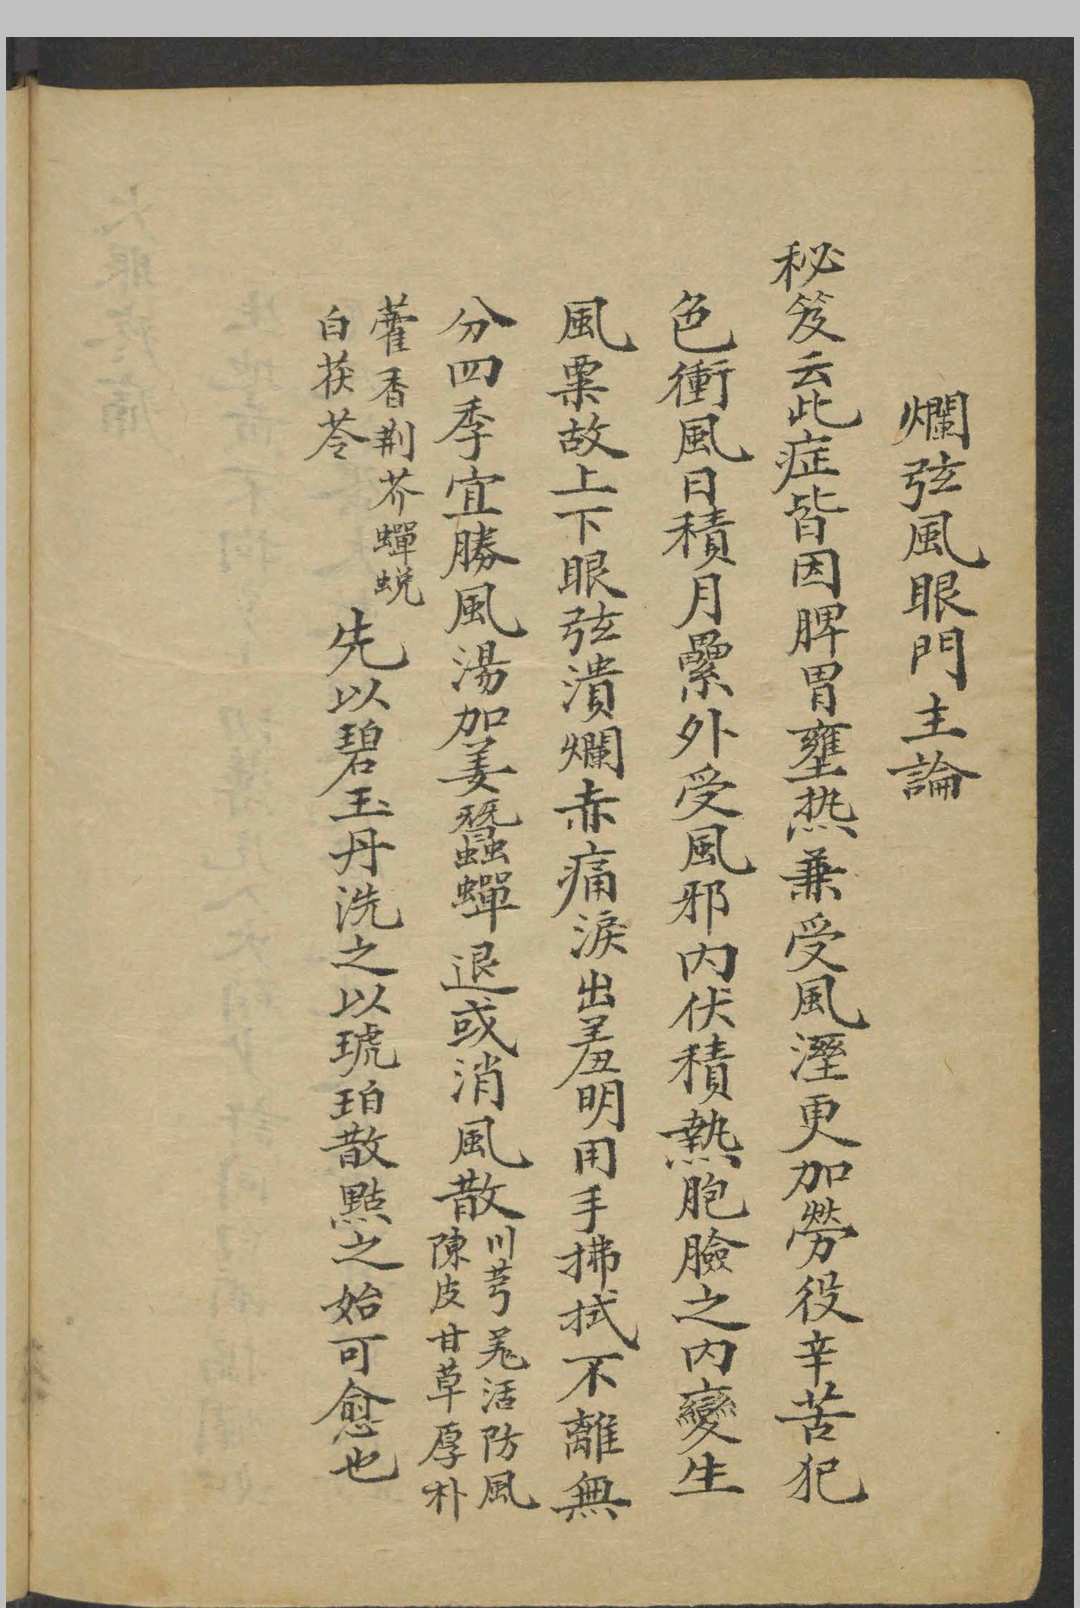 爛弦風眼門主論
秘笈云此症皆因脾胃壅热兼受風溼更加勞役辛苦犯
色衝風日積月纍外受風邪內伏積熱胞臉之內變生
風粟故上下眼弦潰爛赤痛淚出羞明用手拂拭不離無
分四季宜勝風湯加姜蠶蟬退或消風散
川芎羗活防風
陳皮甘草厚朴
藿香荆芥蟬蜕
白茯苓
先以碧玉丹洗之以琥珀散點之始可愈也